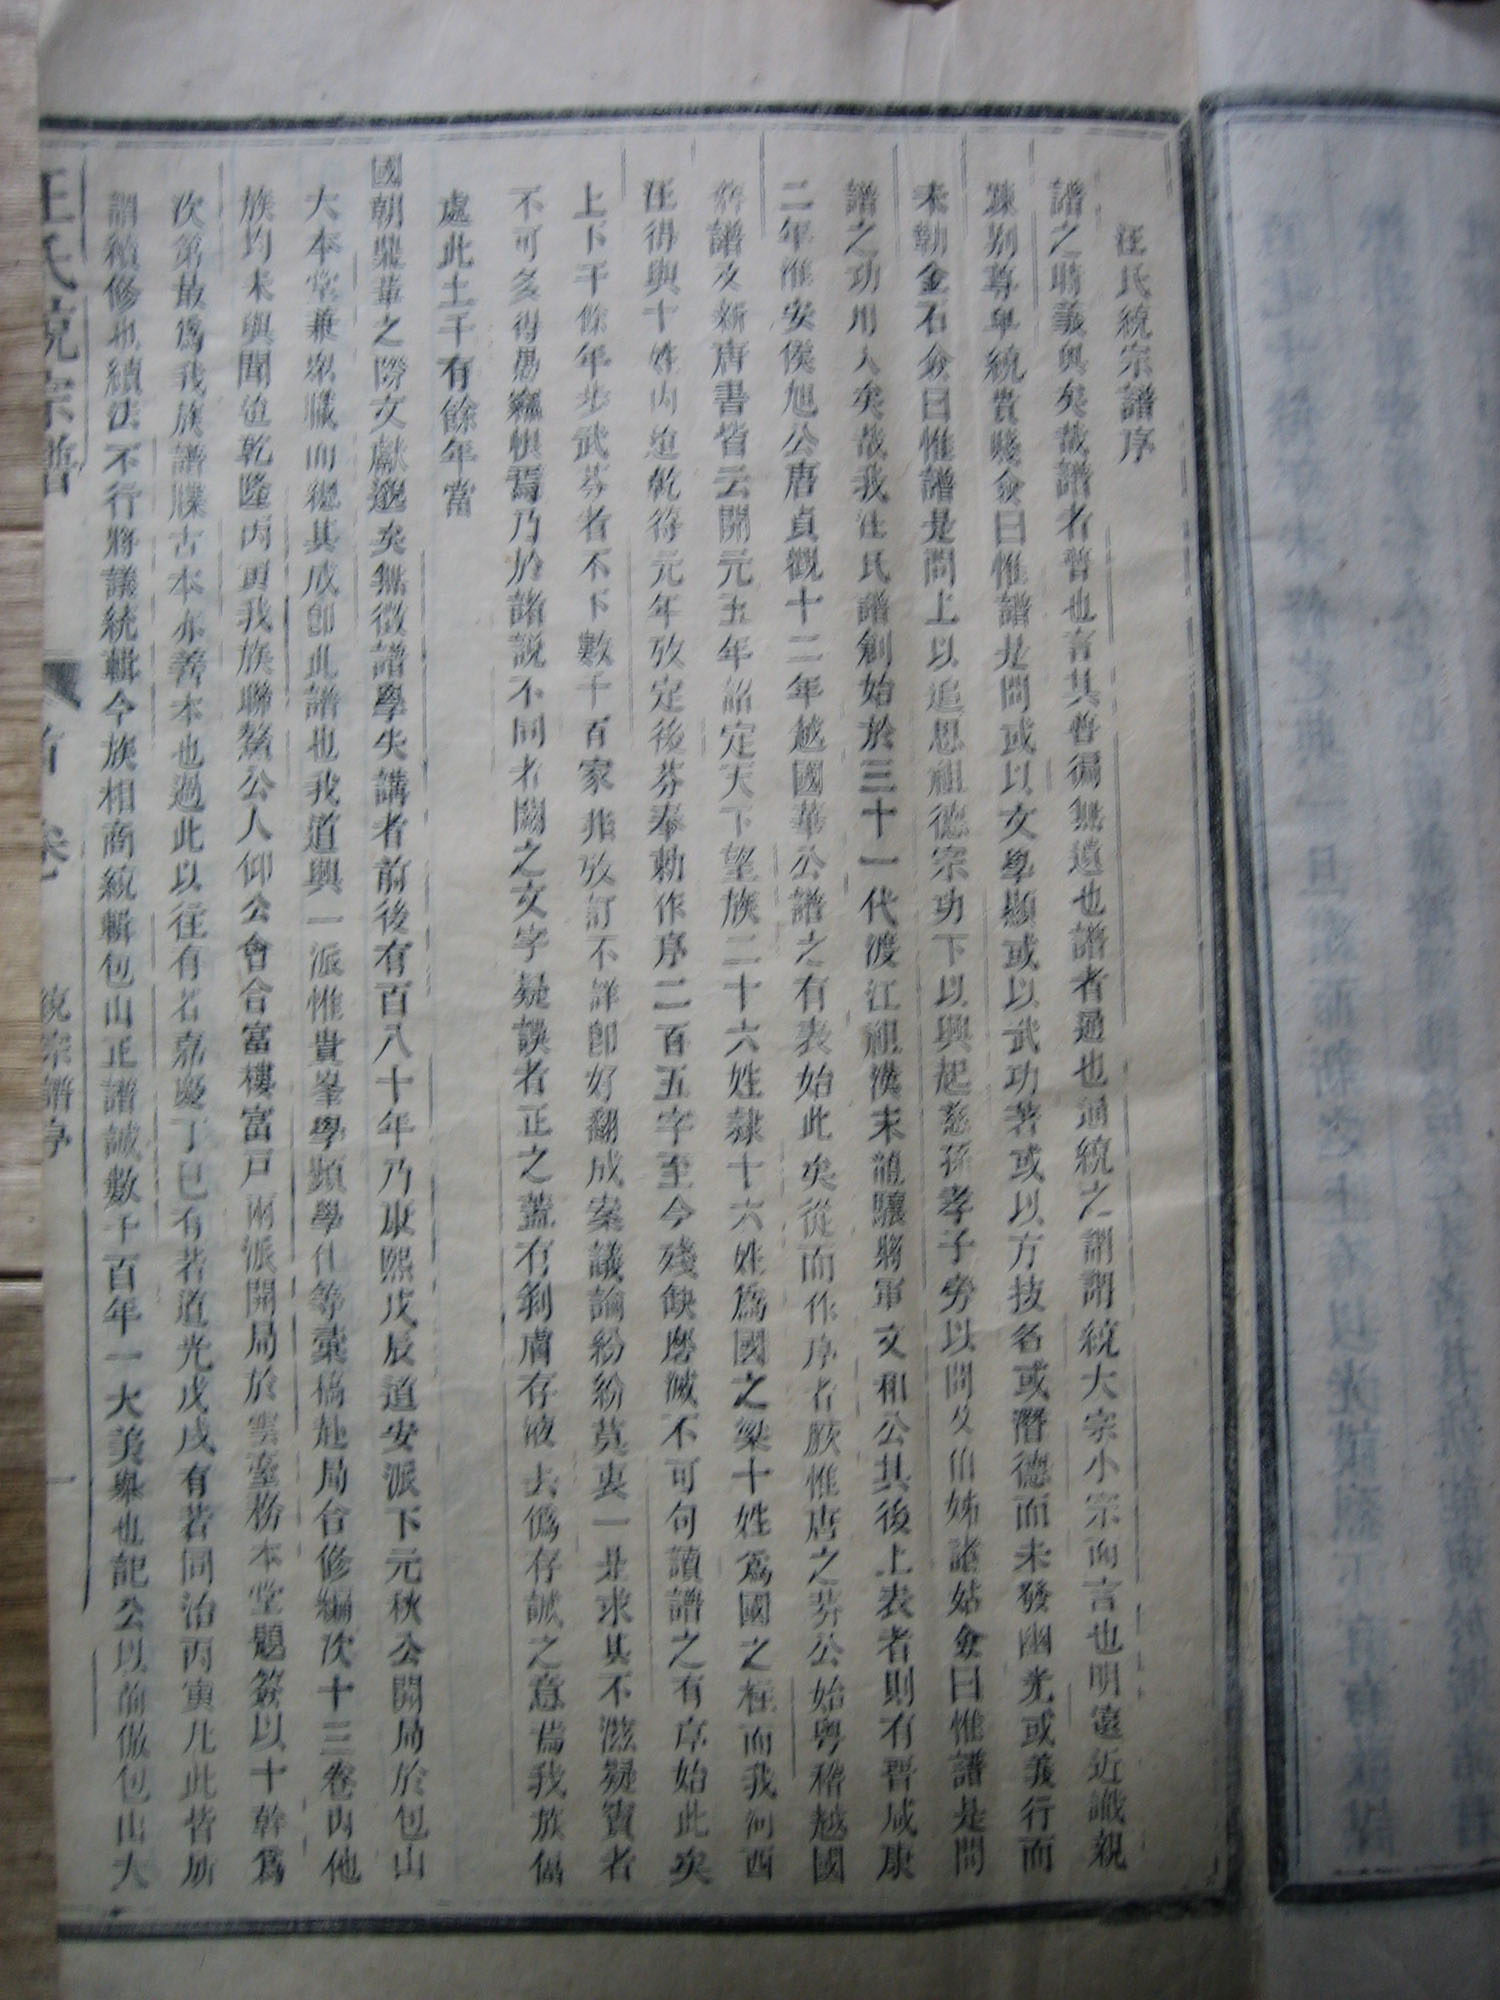 汪氏統宗譜序
譜之時義與矣哉譜者普也言其普徧無遺也譜者通也通統之謂謂統大宗小宗而言也明遠近識親
疎別尊卑統貴賤僉曰惟譜是問或以文學顯或以武功著或以方技名或潛德而未發幽光或義行而
未勒金石僉曰惟譜是問上以追思祖德宗功下以興起慈孫孝子旁以問及伯姊諸姑僉曰惟譜是問
譜之功用大矣哉我汪氏譜創始於三十一代渡江祖漢末龍驤將軍文和公其後上表者則有晉咸康
二年淮安侯旭公唐貞觀十二年越國華公譜之有表始此矣從而作序者厥惟唐之芬公始粵稽越國
舊譜及新唐書皆云開元五年詔定天下望族二十六姓隸十六姓爲國之梁十姓爲國之柱而我河西
汪得與十姓內迨乾符元年攷定後芬奉勅作序二百五字至今殘缺磨滅不可句讀譜之有序始此矣
上下千餘年步武芬者不下數千百家非攷訂不詳卽好翻成案議論紛紛莫衷一是求其不滋疑竇者
不可多得愚竊惧焉乃於諸說不同者闕之文字疑誤者正之蓋有剝膚存液去僞存誠之意焉我族偪
處此土千有餘年當
國朝鼎革之際文獻邈矣無徵譜學失講者前後有百八十年乃康熙戊辰逌安派下元秋公開局於包山
大本堂兼眾職而總其成卽此譜也我道興一派惟貴峯學顯學仕等彙稿赴局合修編次十三卷內他
族均未與聞迨乾隆丙寅我族聯鰲公人仰公會合富樓富戶兩派開局於雲臺務本堂題簽以十幹爲
次第最爲我族譜牒古本亦善本也過此以往有若嘉慶丁巳有若道光戊戌有若同治丙寅凡此皆所
謂續修也續法不行將議統輯今族相商統輯包山正譜誠數千百年一大美舉也記公以前倣包山大
汪氏統宗譜
首 卷 統宗譜序 一